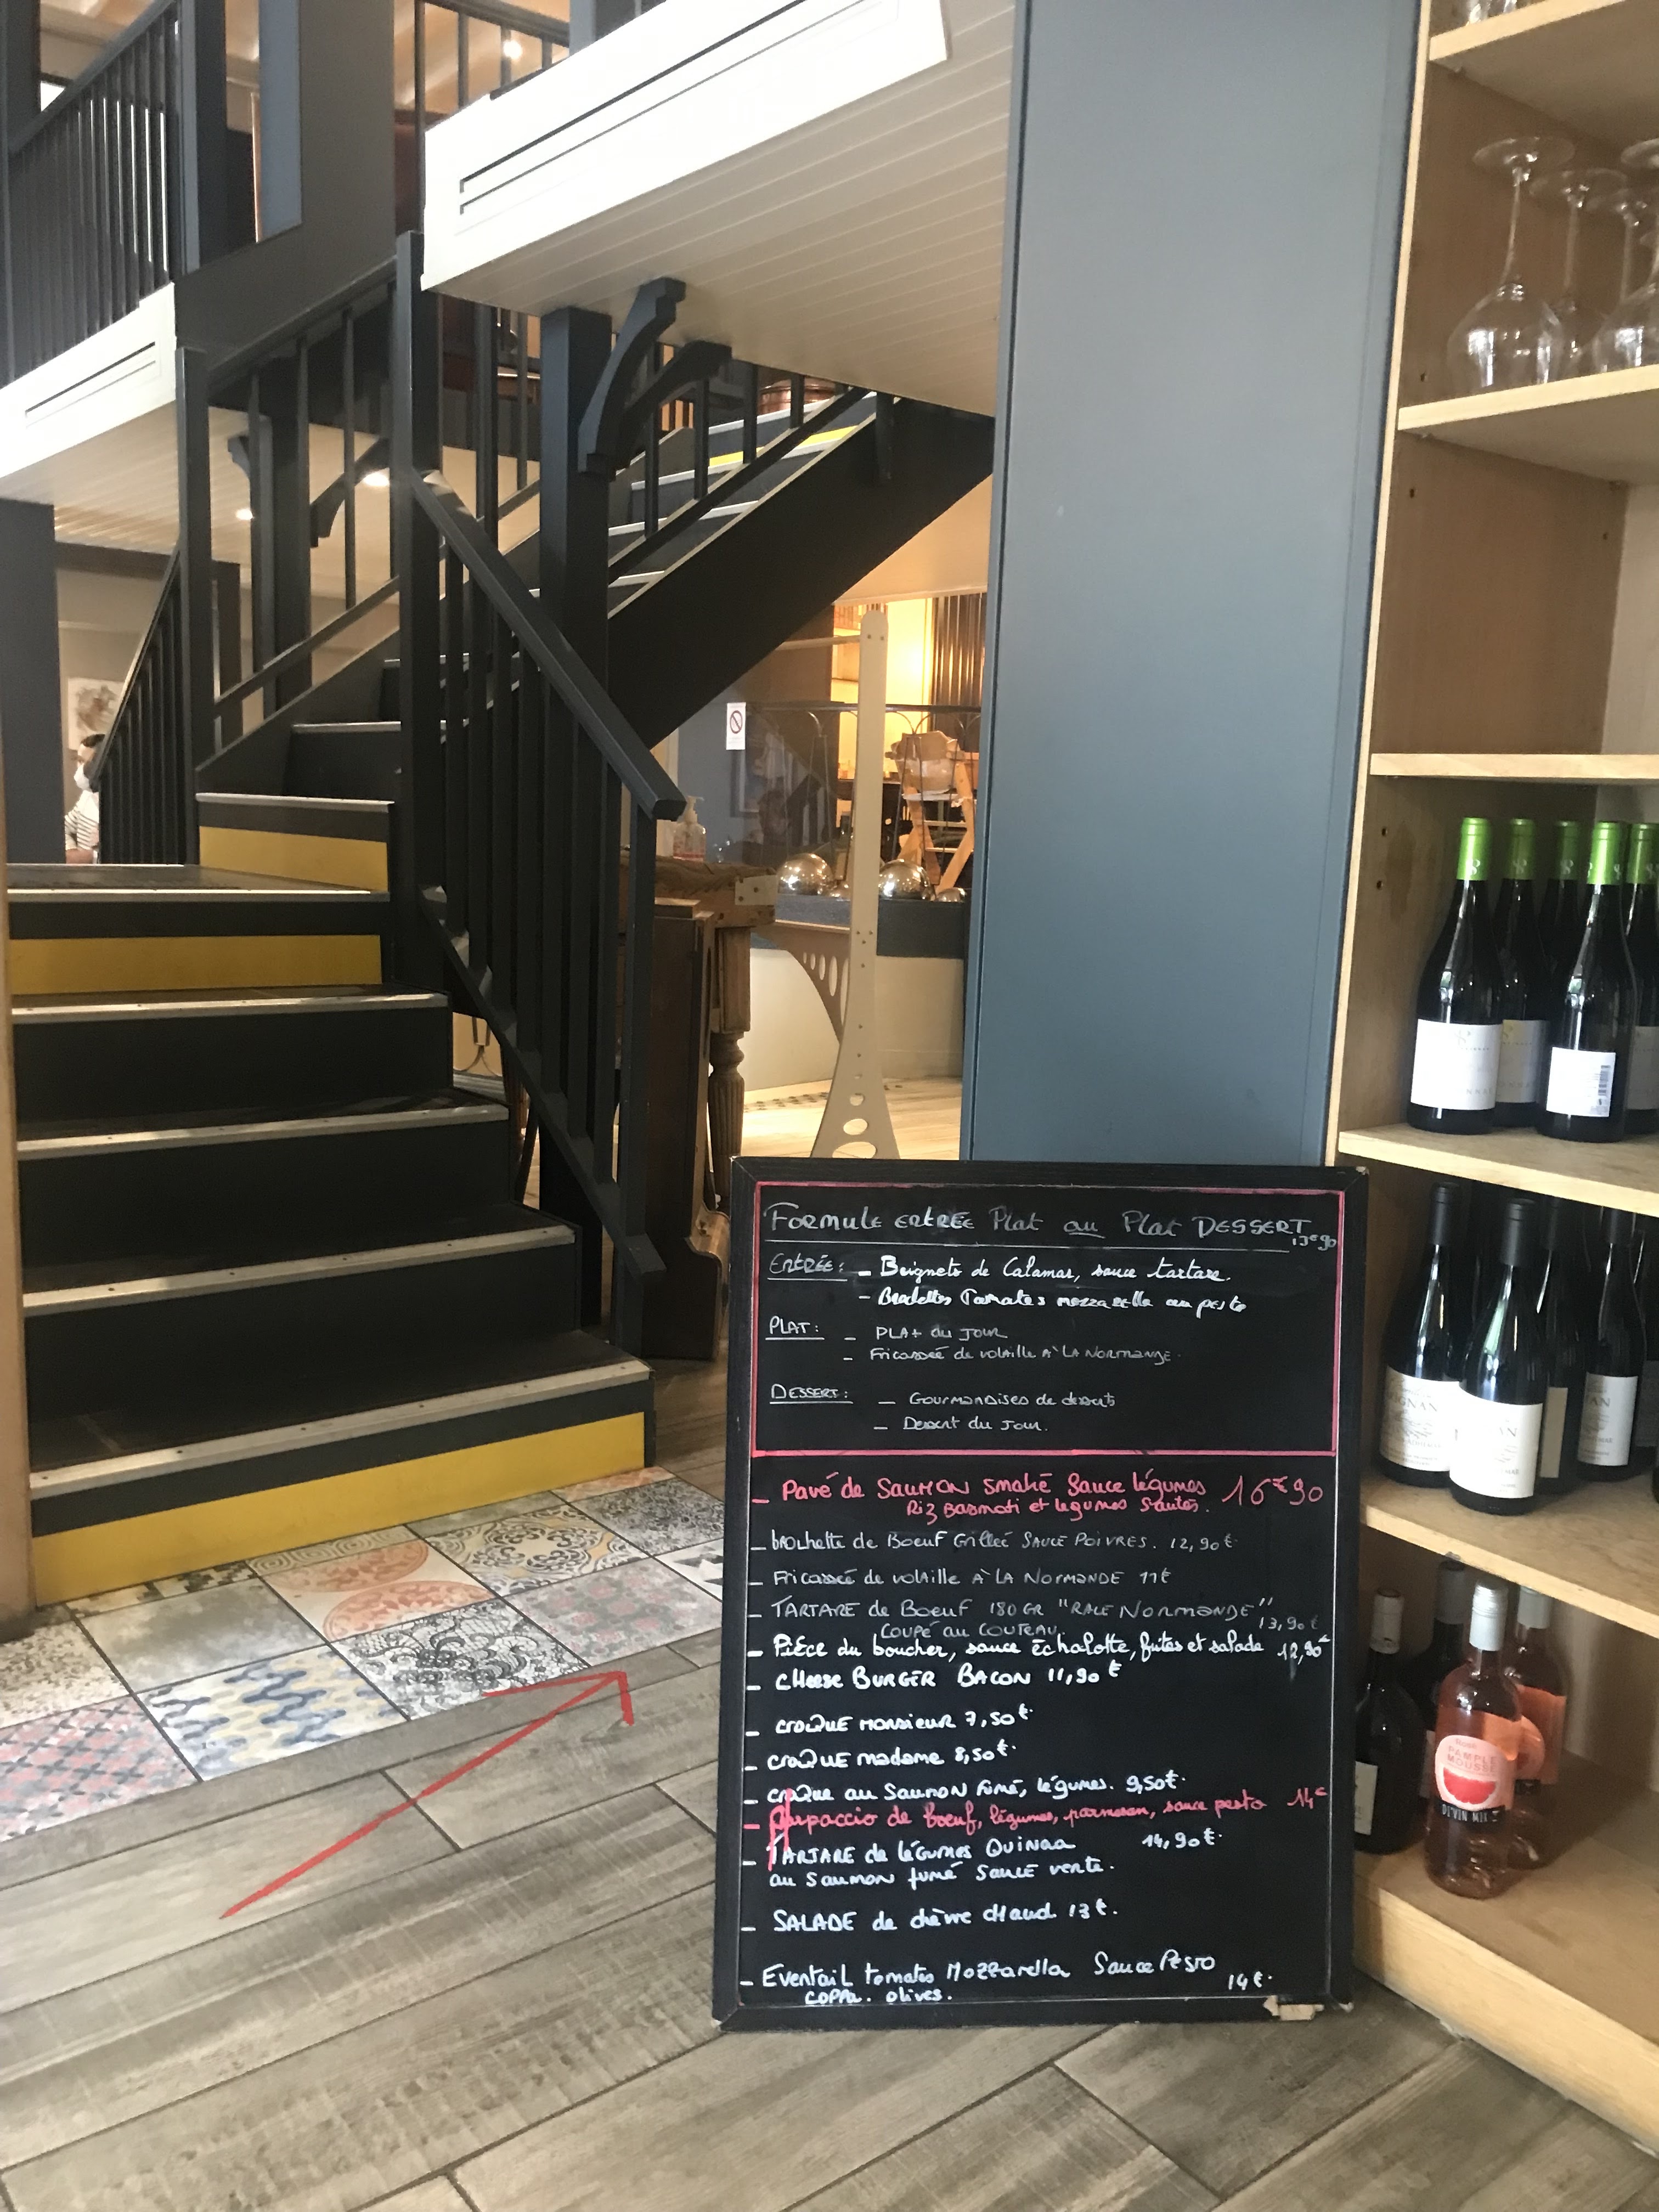 FORMULE ENTRÉE Plat au Plat DESSERT
13€90
ENTRÉE: - Beignets de Calamar, sauce tartare.
- Tomates mozzarella au pesto
PLAT: - PLAt du JOUR
- Fricassée de volaille A LA NORMANDE.
DESSERT: - Gourmandises de desserts
- Dessert du Jour.
- Pavé de SAUMON Smaké Sauce légumes 16€90
Riz Basmati et legumes Sautés.
- brochette de Boeuf Grilleé SAUCE POIVRES. 12,90€
- Fricasseé de volaille A LA NORMANDE 11€
- TARTARE de BoeuF 180 GR "RACE NORMANDE"
COUPÉ au COUTEAU. 13,90€
- PIÈCE du boucher, sauce Échalotte, frites et salade 12,90€
- CHeese BURGER BACON 11,90€
- CROQUE monsieur 7,50€
- CROQUE madame 8,50€
- croque au SAUMON Fumé, légumes. 9,50€
- Carpaccio de boeuf, légumes, parmesan, sauce pesto 14€
- TARTARE de légumes QUINOA 14,90€
au SAUMON fumé SAUCE verte.
- SALADE de chèvre CHaud 13€
- EventaiL tomates Mozzarella Sauce PESTO
COPPA. olives. 14€
PAMPLE
MOUSSE
DI'VIN MIX